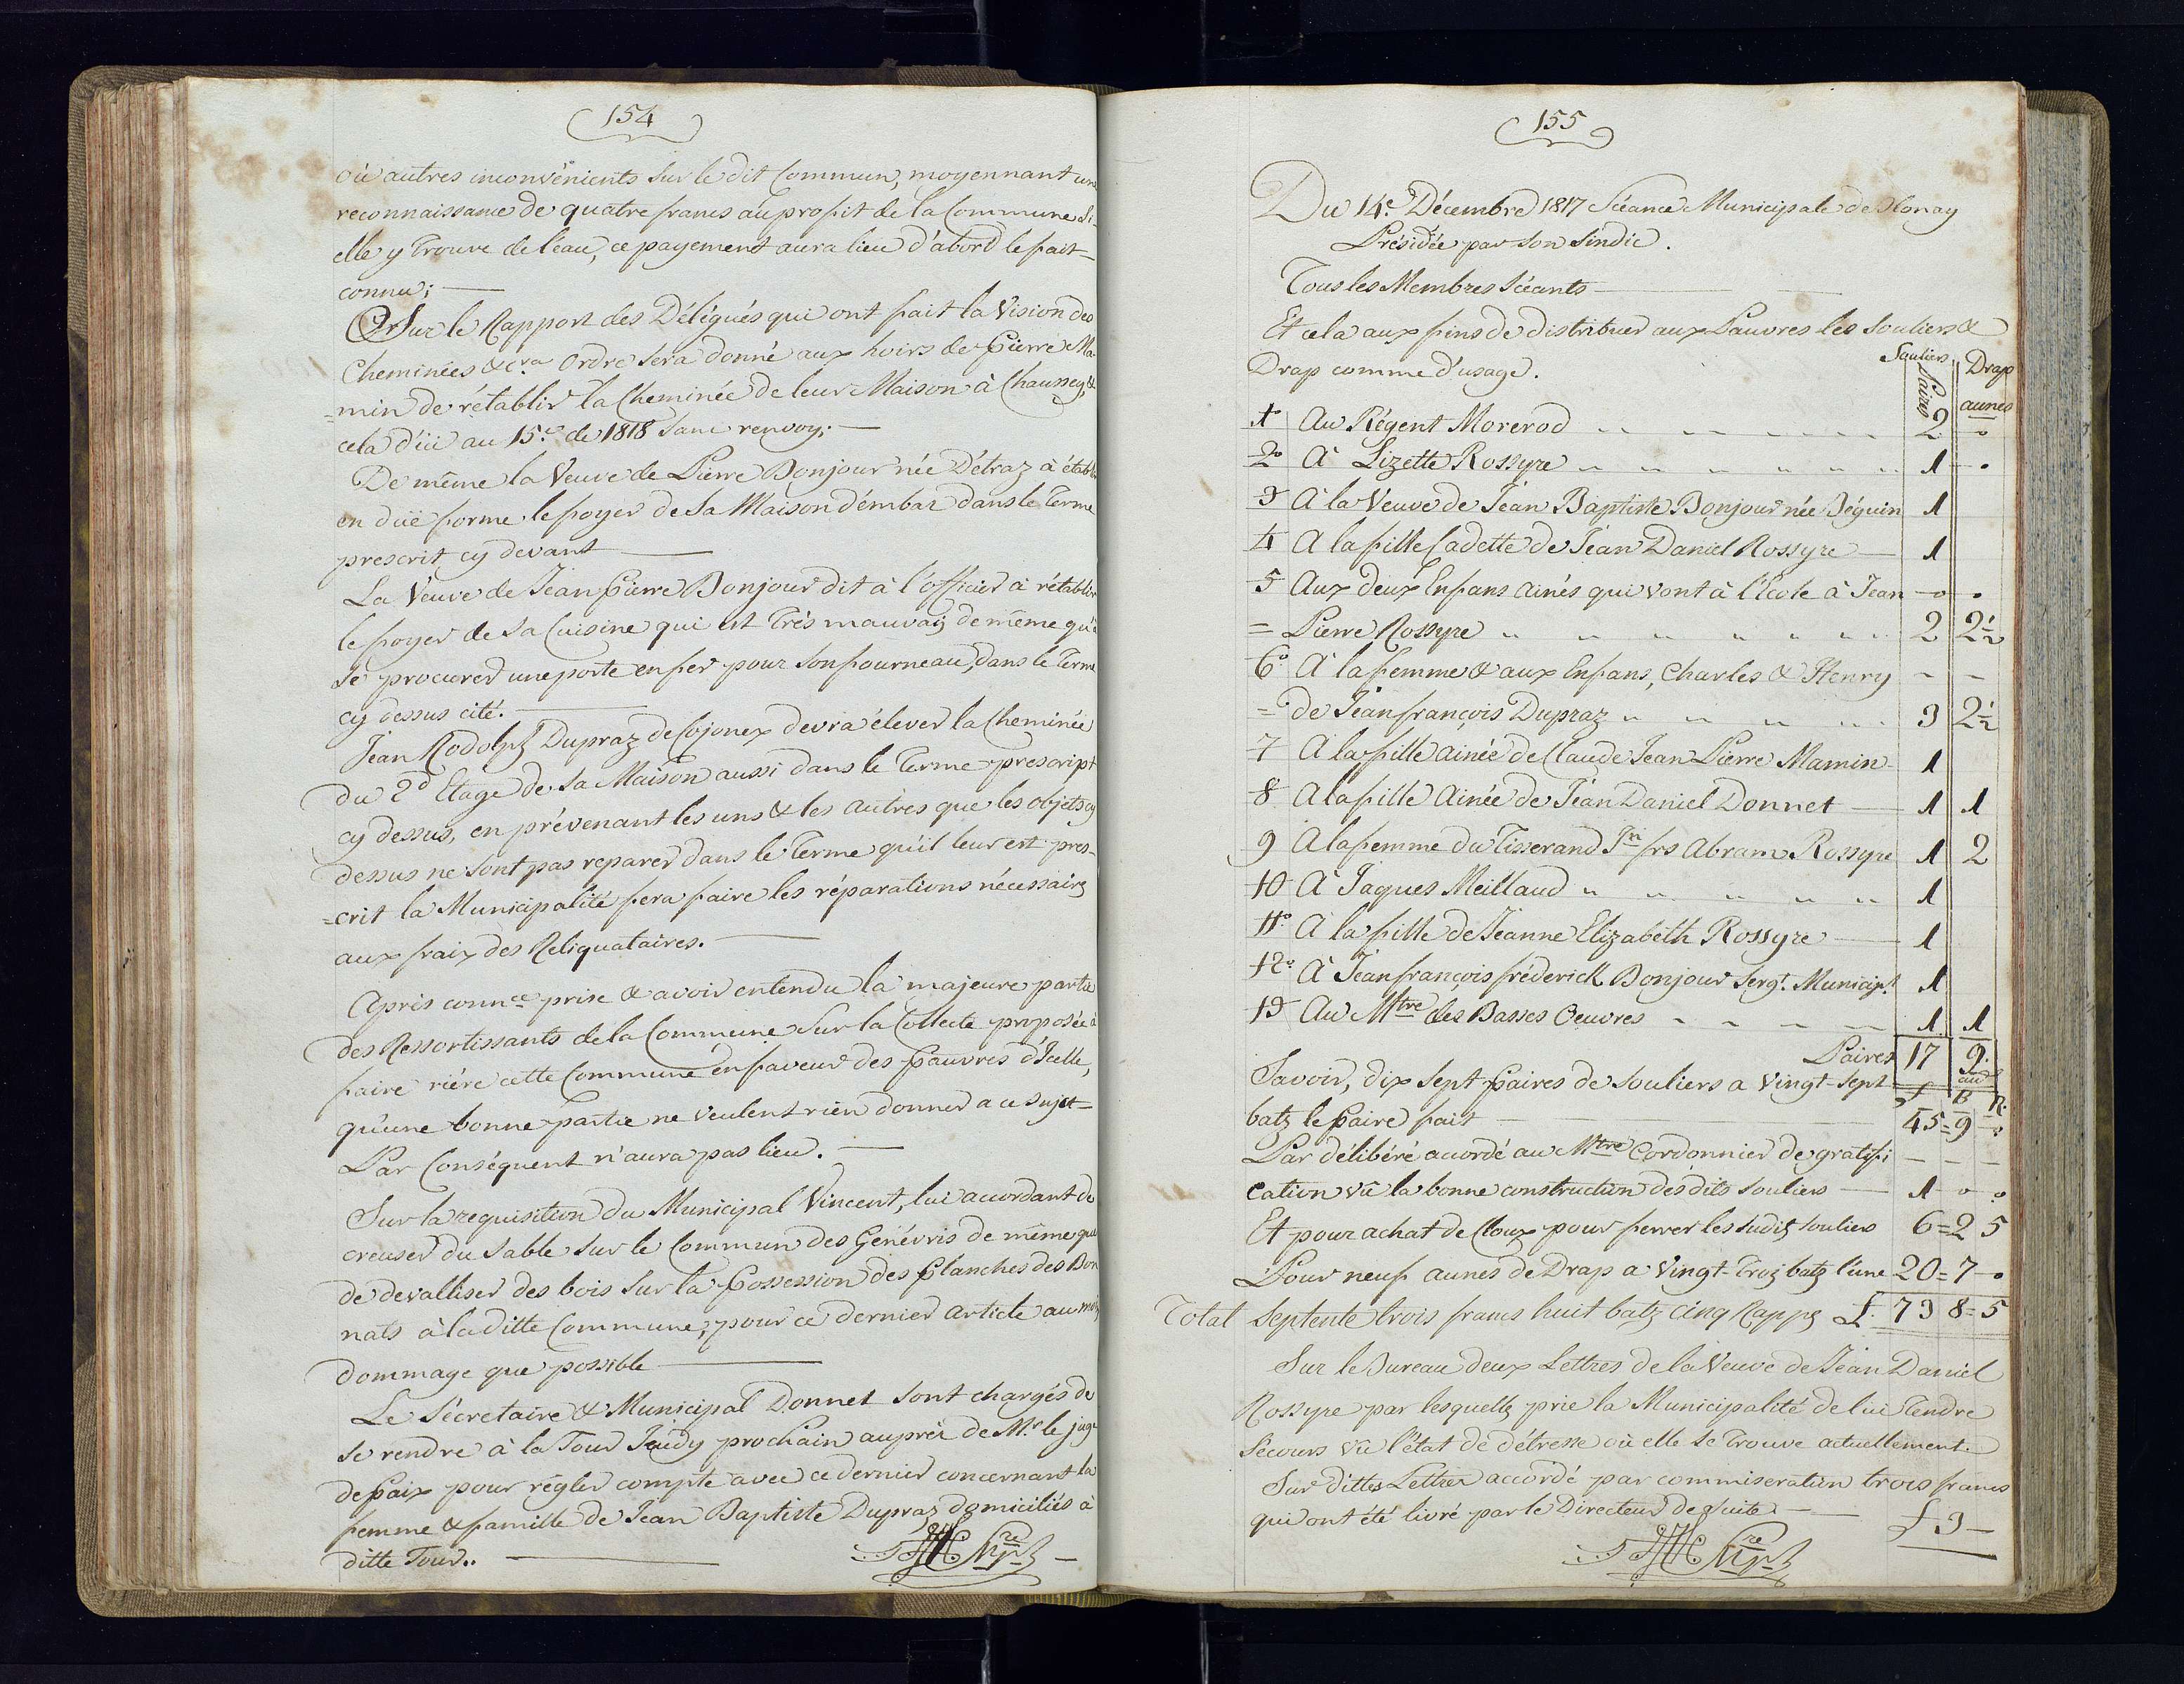 154
où autres inconvénients sur le dit Commun, moyennant une
reconnaissance de quatre francs au profit de la Commune si
elle y trouve de l'eau, ce payement aura lieu d'abord le fait
connu;
Sur le Rapport des Délégués qui ont fait la Vision des
Cheminées &c.ra Ordre sera donné aux hoirs de Pierre Ma-
=min de rétablir la Cheminée de leur Maison à Chaussey, &
cela d'ici au 15.e de 1818 sans renvoy;
De même la Veuve de Pierre Bonjour née Détraz à établir
en düe forme le foyer de sa Maison d'embaz dans le terme
prescrit cy devant
La Veuve de Jean Pierre Bonjour dit à l'officier à rétablir
le foyer de sa Cuisine qui est très mauvais de même qu'à
se procurer une porte en fer pour son fourneau, dans le terme
cy dessus cité.
Jean Rodolph Dupraz de Cojonex devra élever la Cheminée
du 2.d Etage de sa Maison aussi dans le terme prescript
cy dessus, en prévenant les uns & les autres que les objets cy
dessus ne sont pas reparer dans le terme qu'il leur est pres-
=crit la Municipalité fera faire les réparations nécessaires
aux fraix des Reliquataires.
Après conn.ce prise & avoir entendu la majeure partie
des Ressortissants de la Commune sur la Collecte proposée à
faire rière cette Commune en faveur des Pauvres d'Icelle,
qu'une bonne partie ne veulent rien donner a ce sujet =
Par Conséquent n'aura pas lieu.
Sur la requisition du Municipal Vincent, lui accordant de
creuser du sable sur le Commun des Genévris de même que
de devalliser des bois sur la Possession des Planches des Bon
nats à la ditte Commune, pour ce dernier article au moins
dommage que possible
Le Sécretaire & Municipal Donnet sont chargés de
se rendre à la Tour Jeudy prochain auprès de M.r le juge
de Paix pour régler compte avec ce dernier concernant la
femme & famille de Jean Baptiste Dupraz domiciliés à
ditte Tour..
155
Du 14.e Décembre 1817 Séance Municipale de Blonay
Présidée par son Sindic.
Tous les Membres Séants
Et cela aux fins de distribuer aux Pauvres les Souliers &
Drap comme d'usage. Souliers Paires Drap aunes
1.o Au Régent Morerod 2
2.o A Lizette Rossyre 1
3 A la Veuve de Jean Baptiste Bonjour née Béguin 1
4 A la fille Cadette de Jean Daniel Rossyre 1
5 Aux deux Enfans ainés qui vont à l'Ecole à Jean
= Pierre Rossyre 2 2½
6.o A la femme & aux Enfans, Charles & Henry
= de Jean françois Dupraz 3 2½
7 A la fille ainée de Claude Jean Pierre Mamin 1
8 A la fille Ainée de Jean Daniel Donnet 1 1
9 A la femme du Tisserand J.n frs Abram Rossyre 1 2
10 A Jaques Meillaud 1
11.o A la fille de Jeanne Elizabéth Rossyre 1
12.o A Jean françois fréderick Bonjour Serg.t Municip.l 1
13 Au M.tre des Basses Oeuvres 1 1
Paires 17 9.
Savoir, dix sept Paires de Souliers a Vingt-sept f B R.
batz le Paire fait 45=9-0
Par délibéré accordé au M.tre Cordonnier de gratifi
cation vû la bonne construction des dits souliers 1 0 0
Et pour achat de Cloux pour ferrer les sudits souliers 6=2 5
Pour neuf aunes de Drap a Vingt-trois batz l'une 20=7-0
Total Septente trois francs huit batz cinq Rapps £. 73 8=5
Sur le Bureau deux Lettres de la Veuve de Jean Daniel
Rossyre par lesquelles prie la Municipalité de lui tendre
secours vû l'état de détresse où elle se trouve actuellement.
Sur dittes Lettres accordé par commiseration trois francs
qui ont été livré par le Directeur de suite £ 3